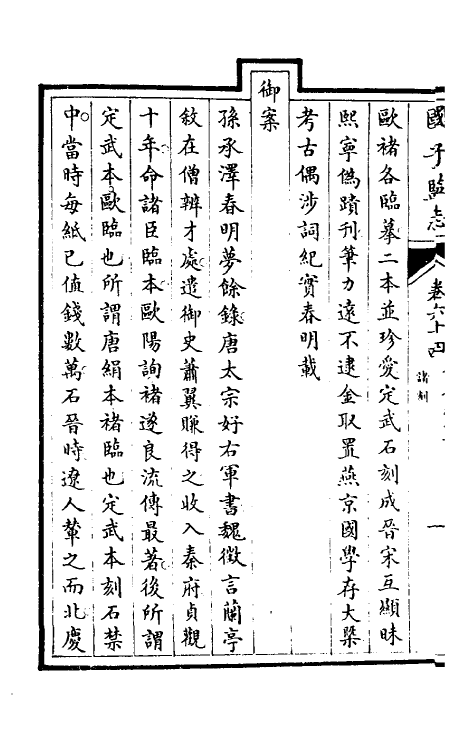 國子監志 卷六十四 諸刻 一
歐褚各臨摹二本並珍愛定武石刻成晉宋互顯昧
熙寧僞蹟刊筆力遠不逮金取置燕京國學存大槩
考古偶涉詞紀實春明載
御案
孫承澤春明夢餘錄唐太宗好右軍書魏徵言蘭亭
敘在僧辨才處遣御史蕭翼賺得之收入秦府貞觀
十年命諸臣臨本歐陽詢褚遂良流傳最著後所謂
定武本歐臨也所謂唐絹本褚臨也定武本刻石禁
中當時每紙已值錢數萬石晉時遼人輦之而北慶